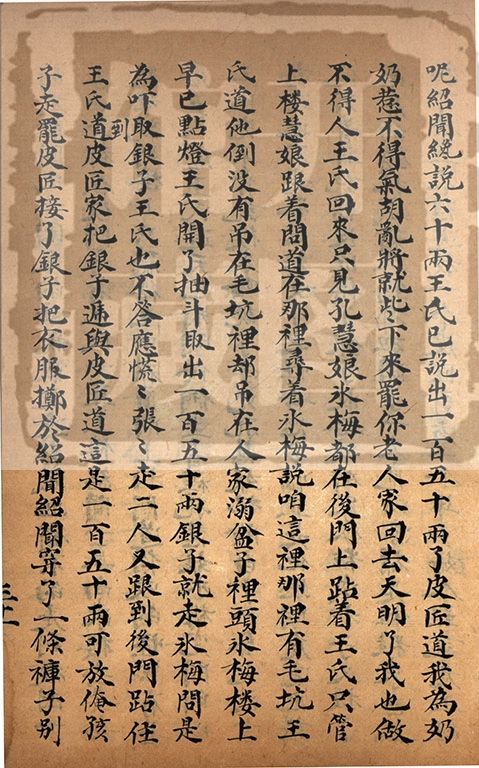 呢紹聞總說六十兩王氏已說出一百五十兩了皮匠道我為奶
奶惹不得氣胡亂將就些下來罷你老人家回去天明了我也做
不得人王氏回來只見孔慧娘氷梅都在後門上跕着王氏只管
上楼慧娘跟着問道在那裡尋着氷梅説咱這裡那裡有毛坑王
氏道他倒没有吊在毛坑裡却吊在人家溺盆子裡頭氷梅楼上
早已點燈王氏開了抽斗取出一百五十兩銀子就走氷梅問是
為吓取銀子王氏也不答應慌〻張〻走二人又跟到後門跕住
王氏道皮匠家把銀子遞與皮匠道這是一百五十兩可放俺孩
到
子走罷皮匠接了銀子把衣服擲於紹聞紹聞穿了一條褲子别
三十一